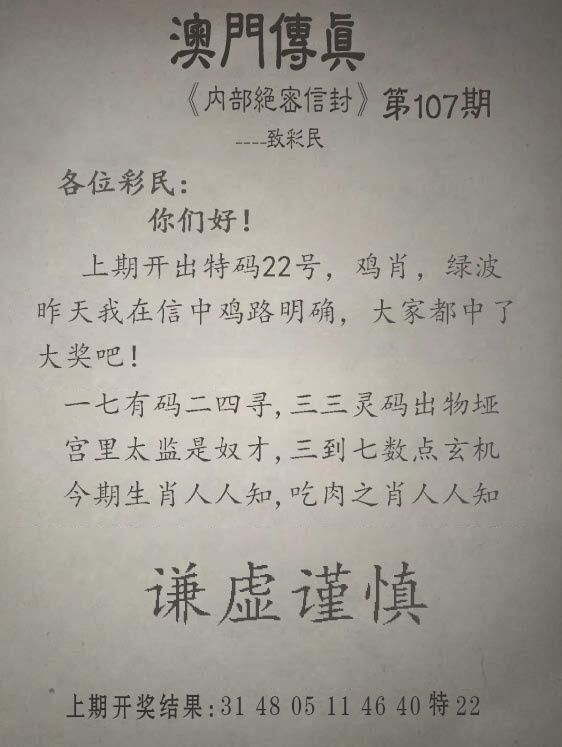 澳門傳真
《内部絕密信封》第107期
----致彩民
各位彩民：
你们好！
上期开出特码22号，鸡肖，绿波
昨天我在信中鸡路明确，大家都中了
大奖吧！
一七有码二四寻,三三灵码出物垭
宫里太监是奴才,三到七数点玄机
今期生肖人人知,吃肉之肖人人知
谦虚谨慎
上期开奖结果:31 48 05 11 46 40 特 22